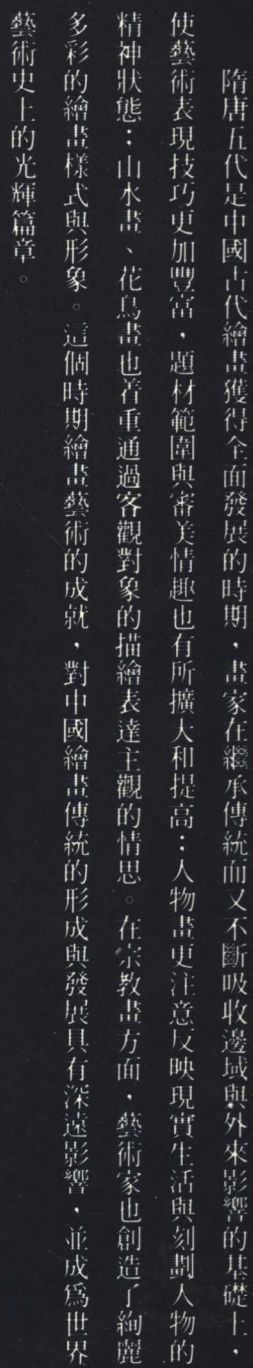 隋唐五代是中國古代繪畫獲得全面發展的時期，畫家在繼承傳統而又不斷吸收邊域與外來影響的基礎上，
使藝術表現技巧更加豐富，題材範圍與審美情趣也有所擴大和提高：人物畫更注意反映現實生活與刻劃人物的
精神狀態；山水畫、花鳥畫也着重通過客觀對象的描繪表達主觀的情思。在宗教畫方面，藝術家也創造了絢麗
多彩的繪畫樣式與形象。這個時期繪畫藝術的成就，對中國繪畫傳統的形成與發展具有深遠影響，並成爲世界
藝術史上的光輝篇章。